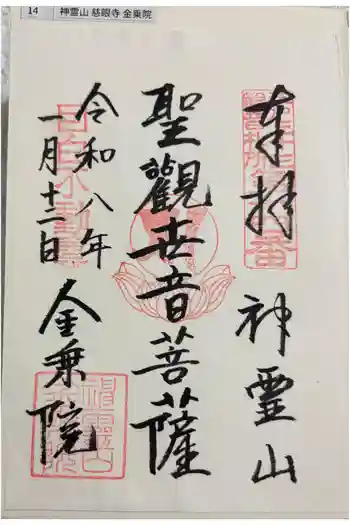 14 神霊山 慈眼寺 金乗院
奉拝 神霊山
聖觀世音菩薩
令和八年
一月十二日
金乗院
目白不動尊